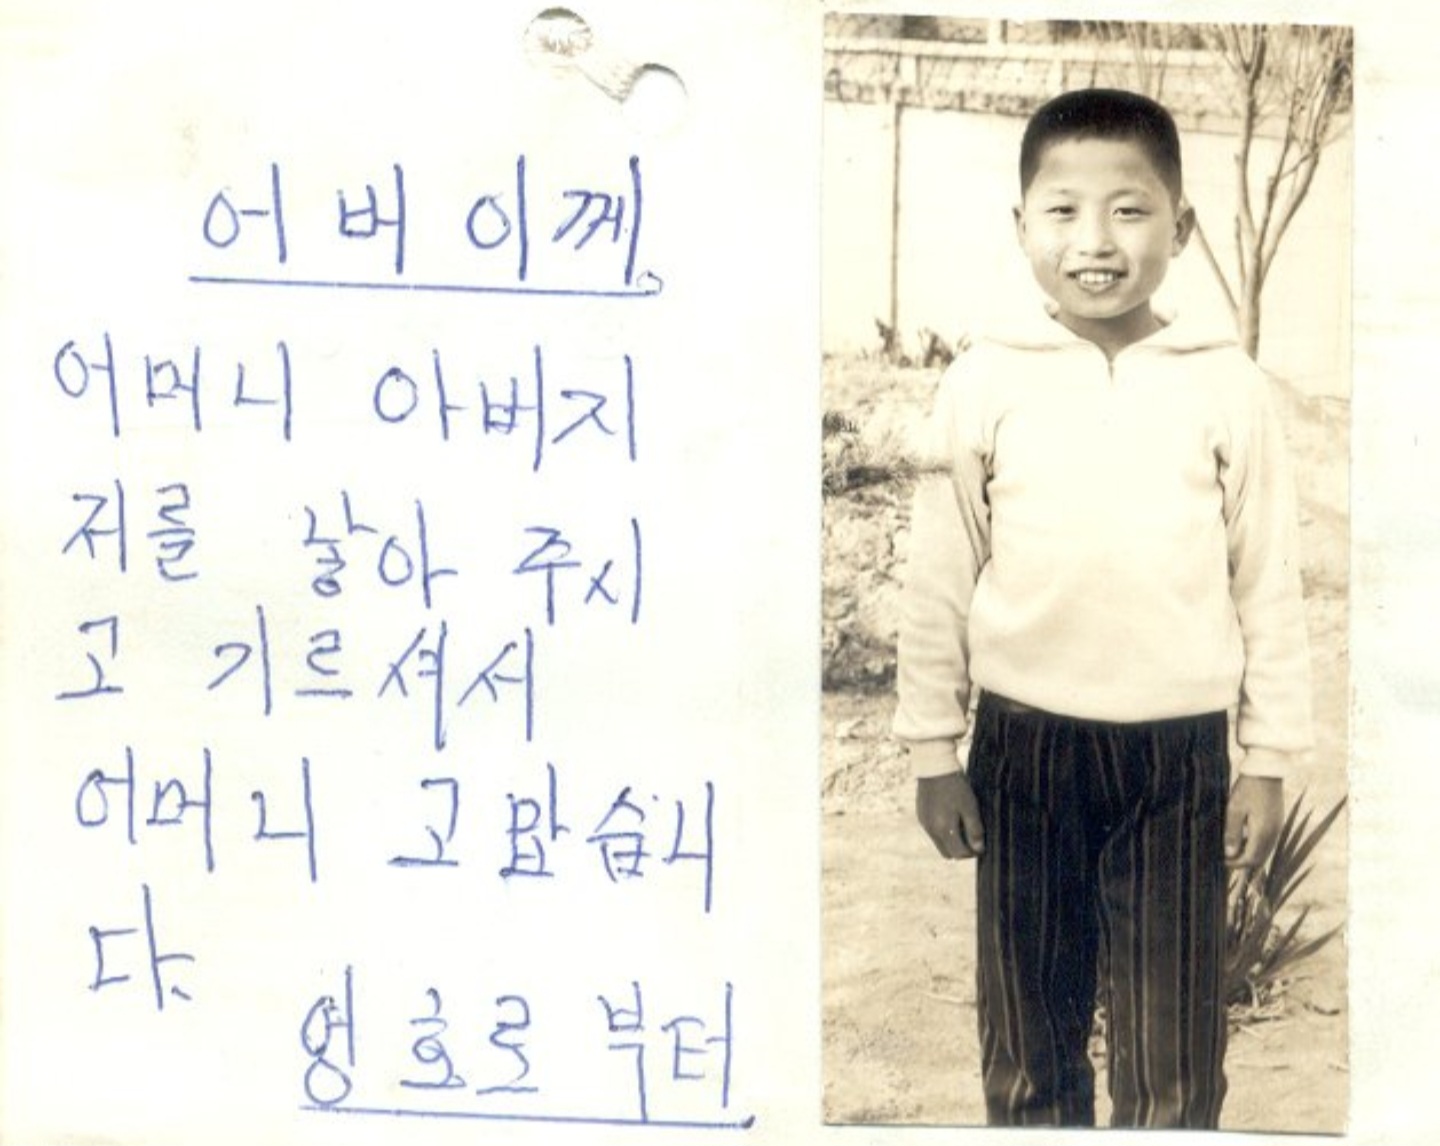 어버이께。
어머니 아버지
저를 낳아 주시
고 기르셔서
어머니 고맙습니
다.
영호로 부터